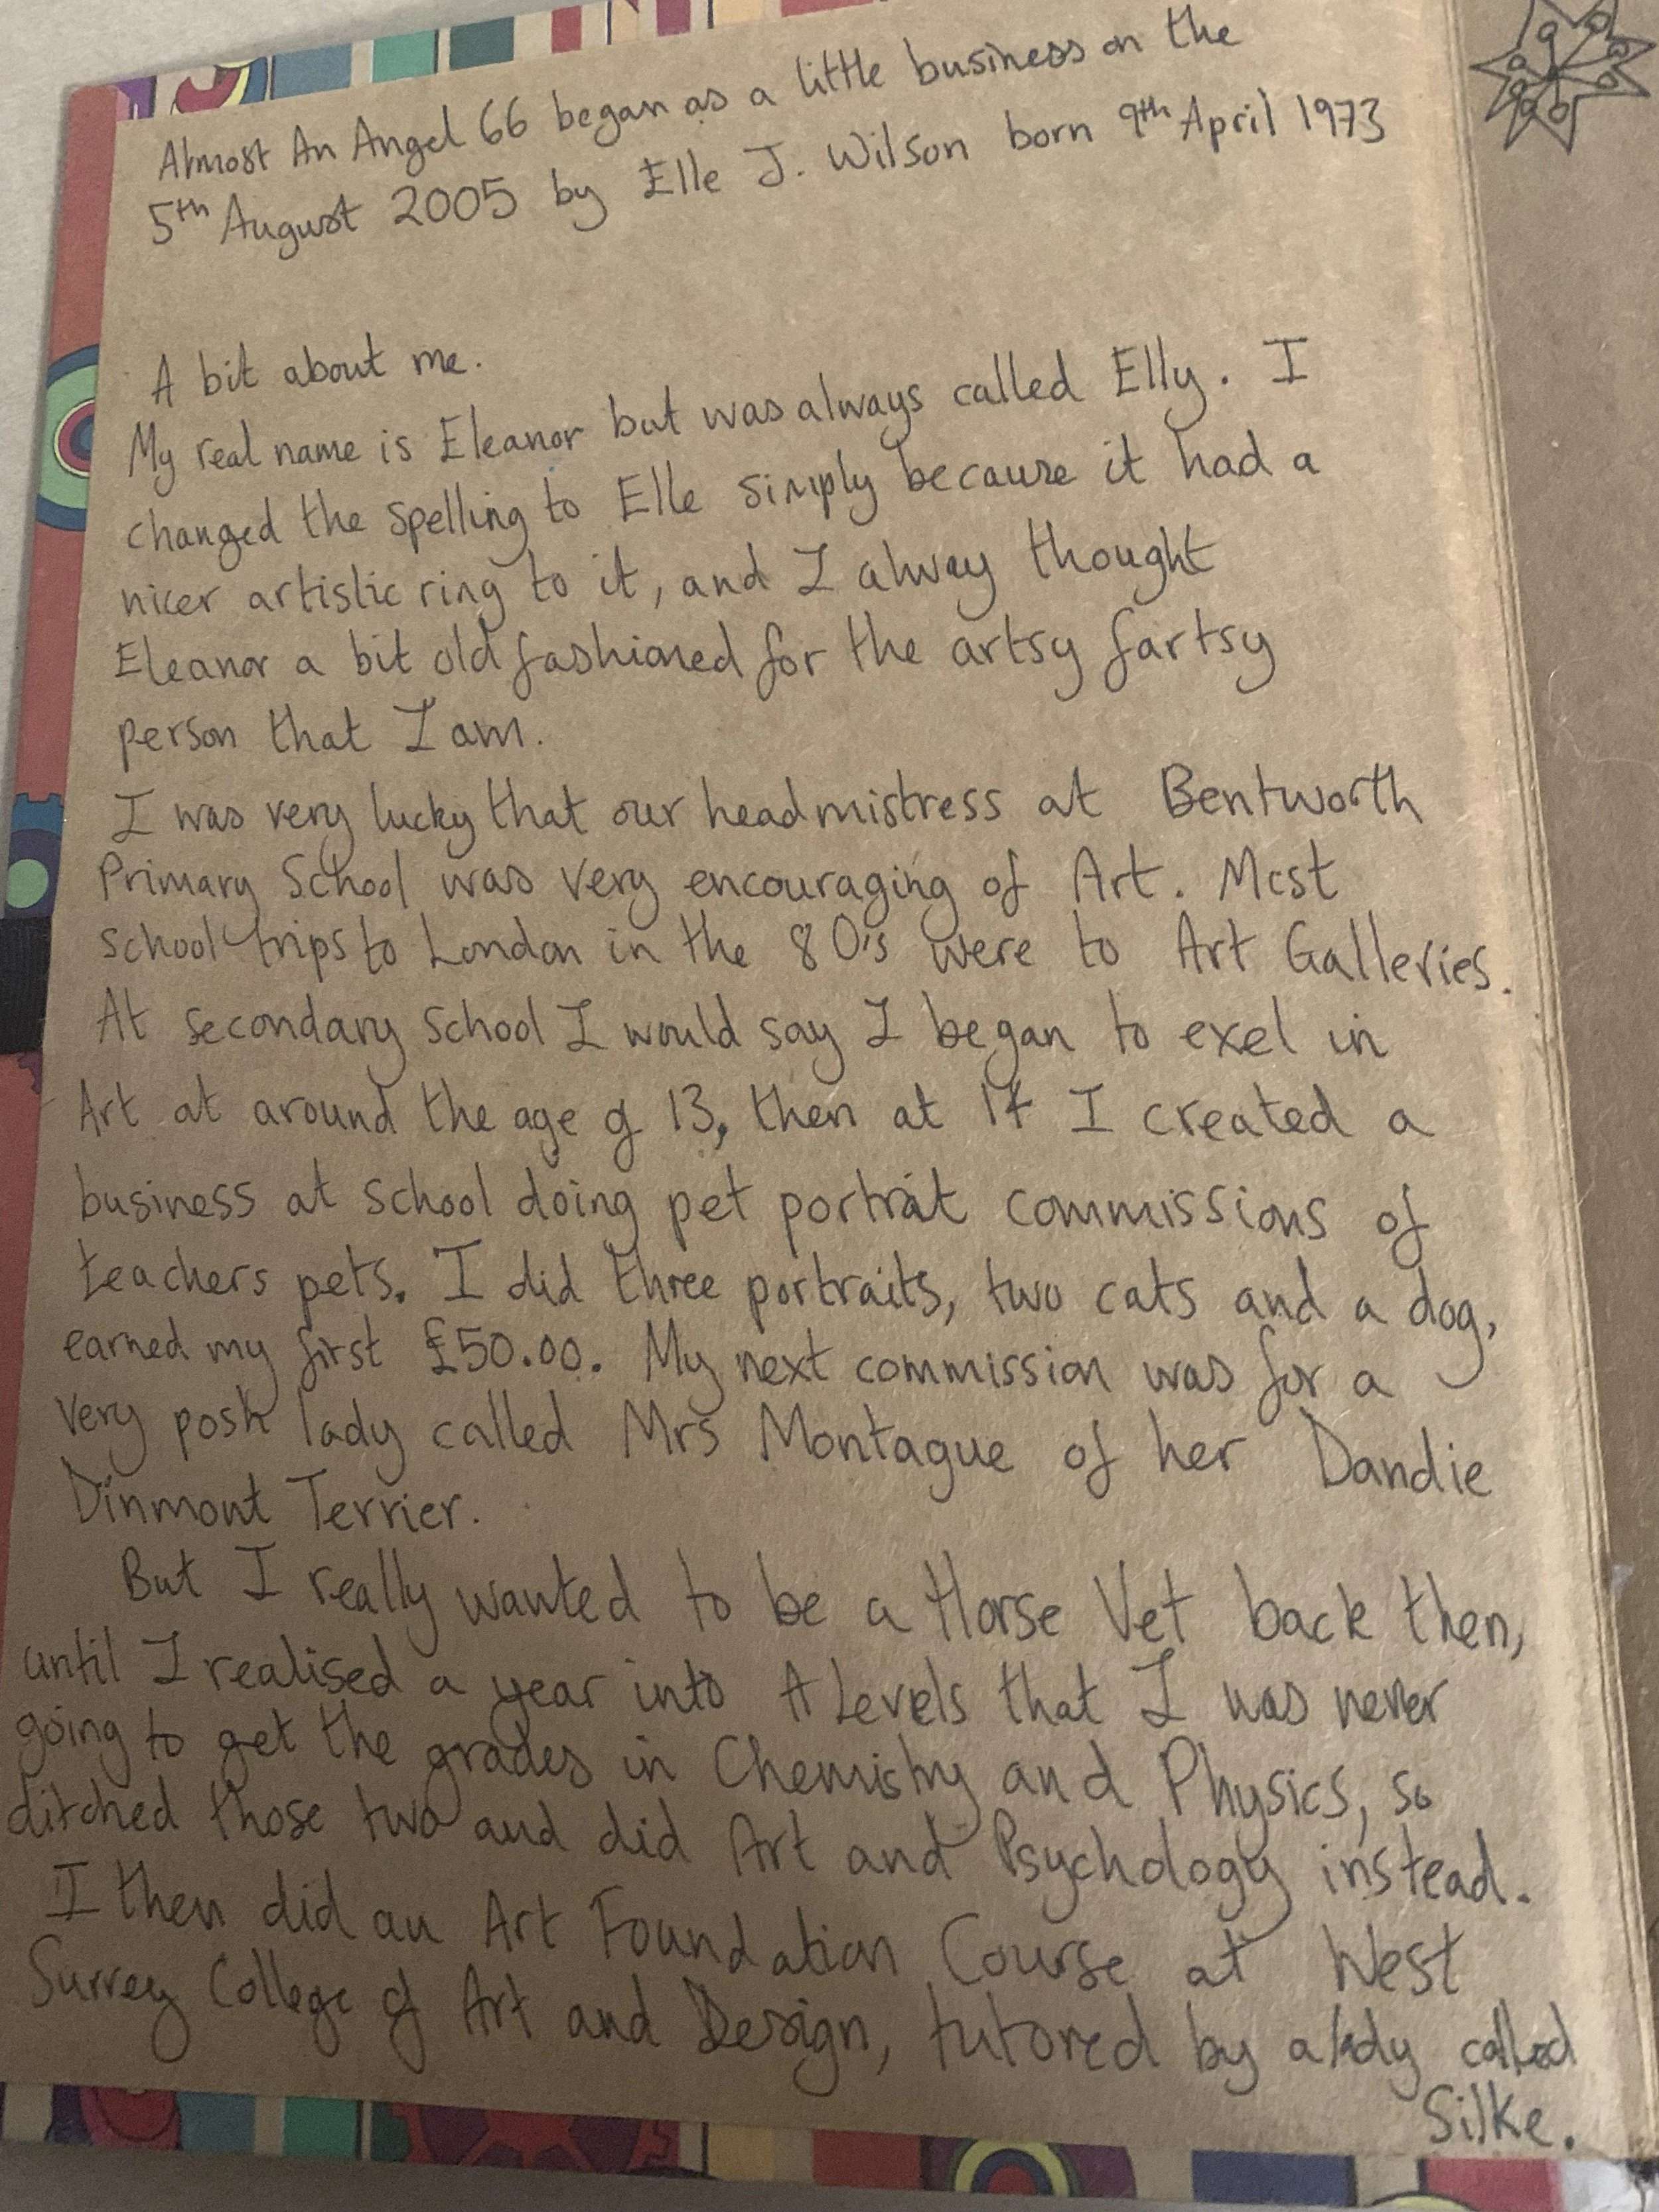 Almost An Angel 66 began as a little business on the
5th August 2005 by Elle J. Wilson born 9th April 1973
A bit about me.
My real name is Eleanor but was always called Elly. I
changed the spelling to Elle simply because it had a
nicer artistic ring to it, and I alway thought
Eleanor a bit old fashioned for the artsy fartsy
person that I am.
I was very lucky that our headmistress at Bentworth
Primary School was very encouraging of Art. Most
school trips to London in the 80's were to Art Galleries.
At secondary school I would say I began to exel in
Art at around the age of 13, then at 17 I created a
business at school doing pet portrait commissions of
teachers pets. I did three portraits, two cats and a dog,
earned my first £50.00. My next commission was for a
very posh lady called Mrs Montague of her Dandie
Dinmont Terrier.
But I really wanted to be a Horse Vet back then,
until I realised a year into A Levels that I was never
going to get the grades in Chemistry and Physics, so
ditched those two and did Art and Psychology instead.
I then did an Art Foundation Course at West
Surrey College of Art and Design, tutored by a lady called
Silke.